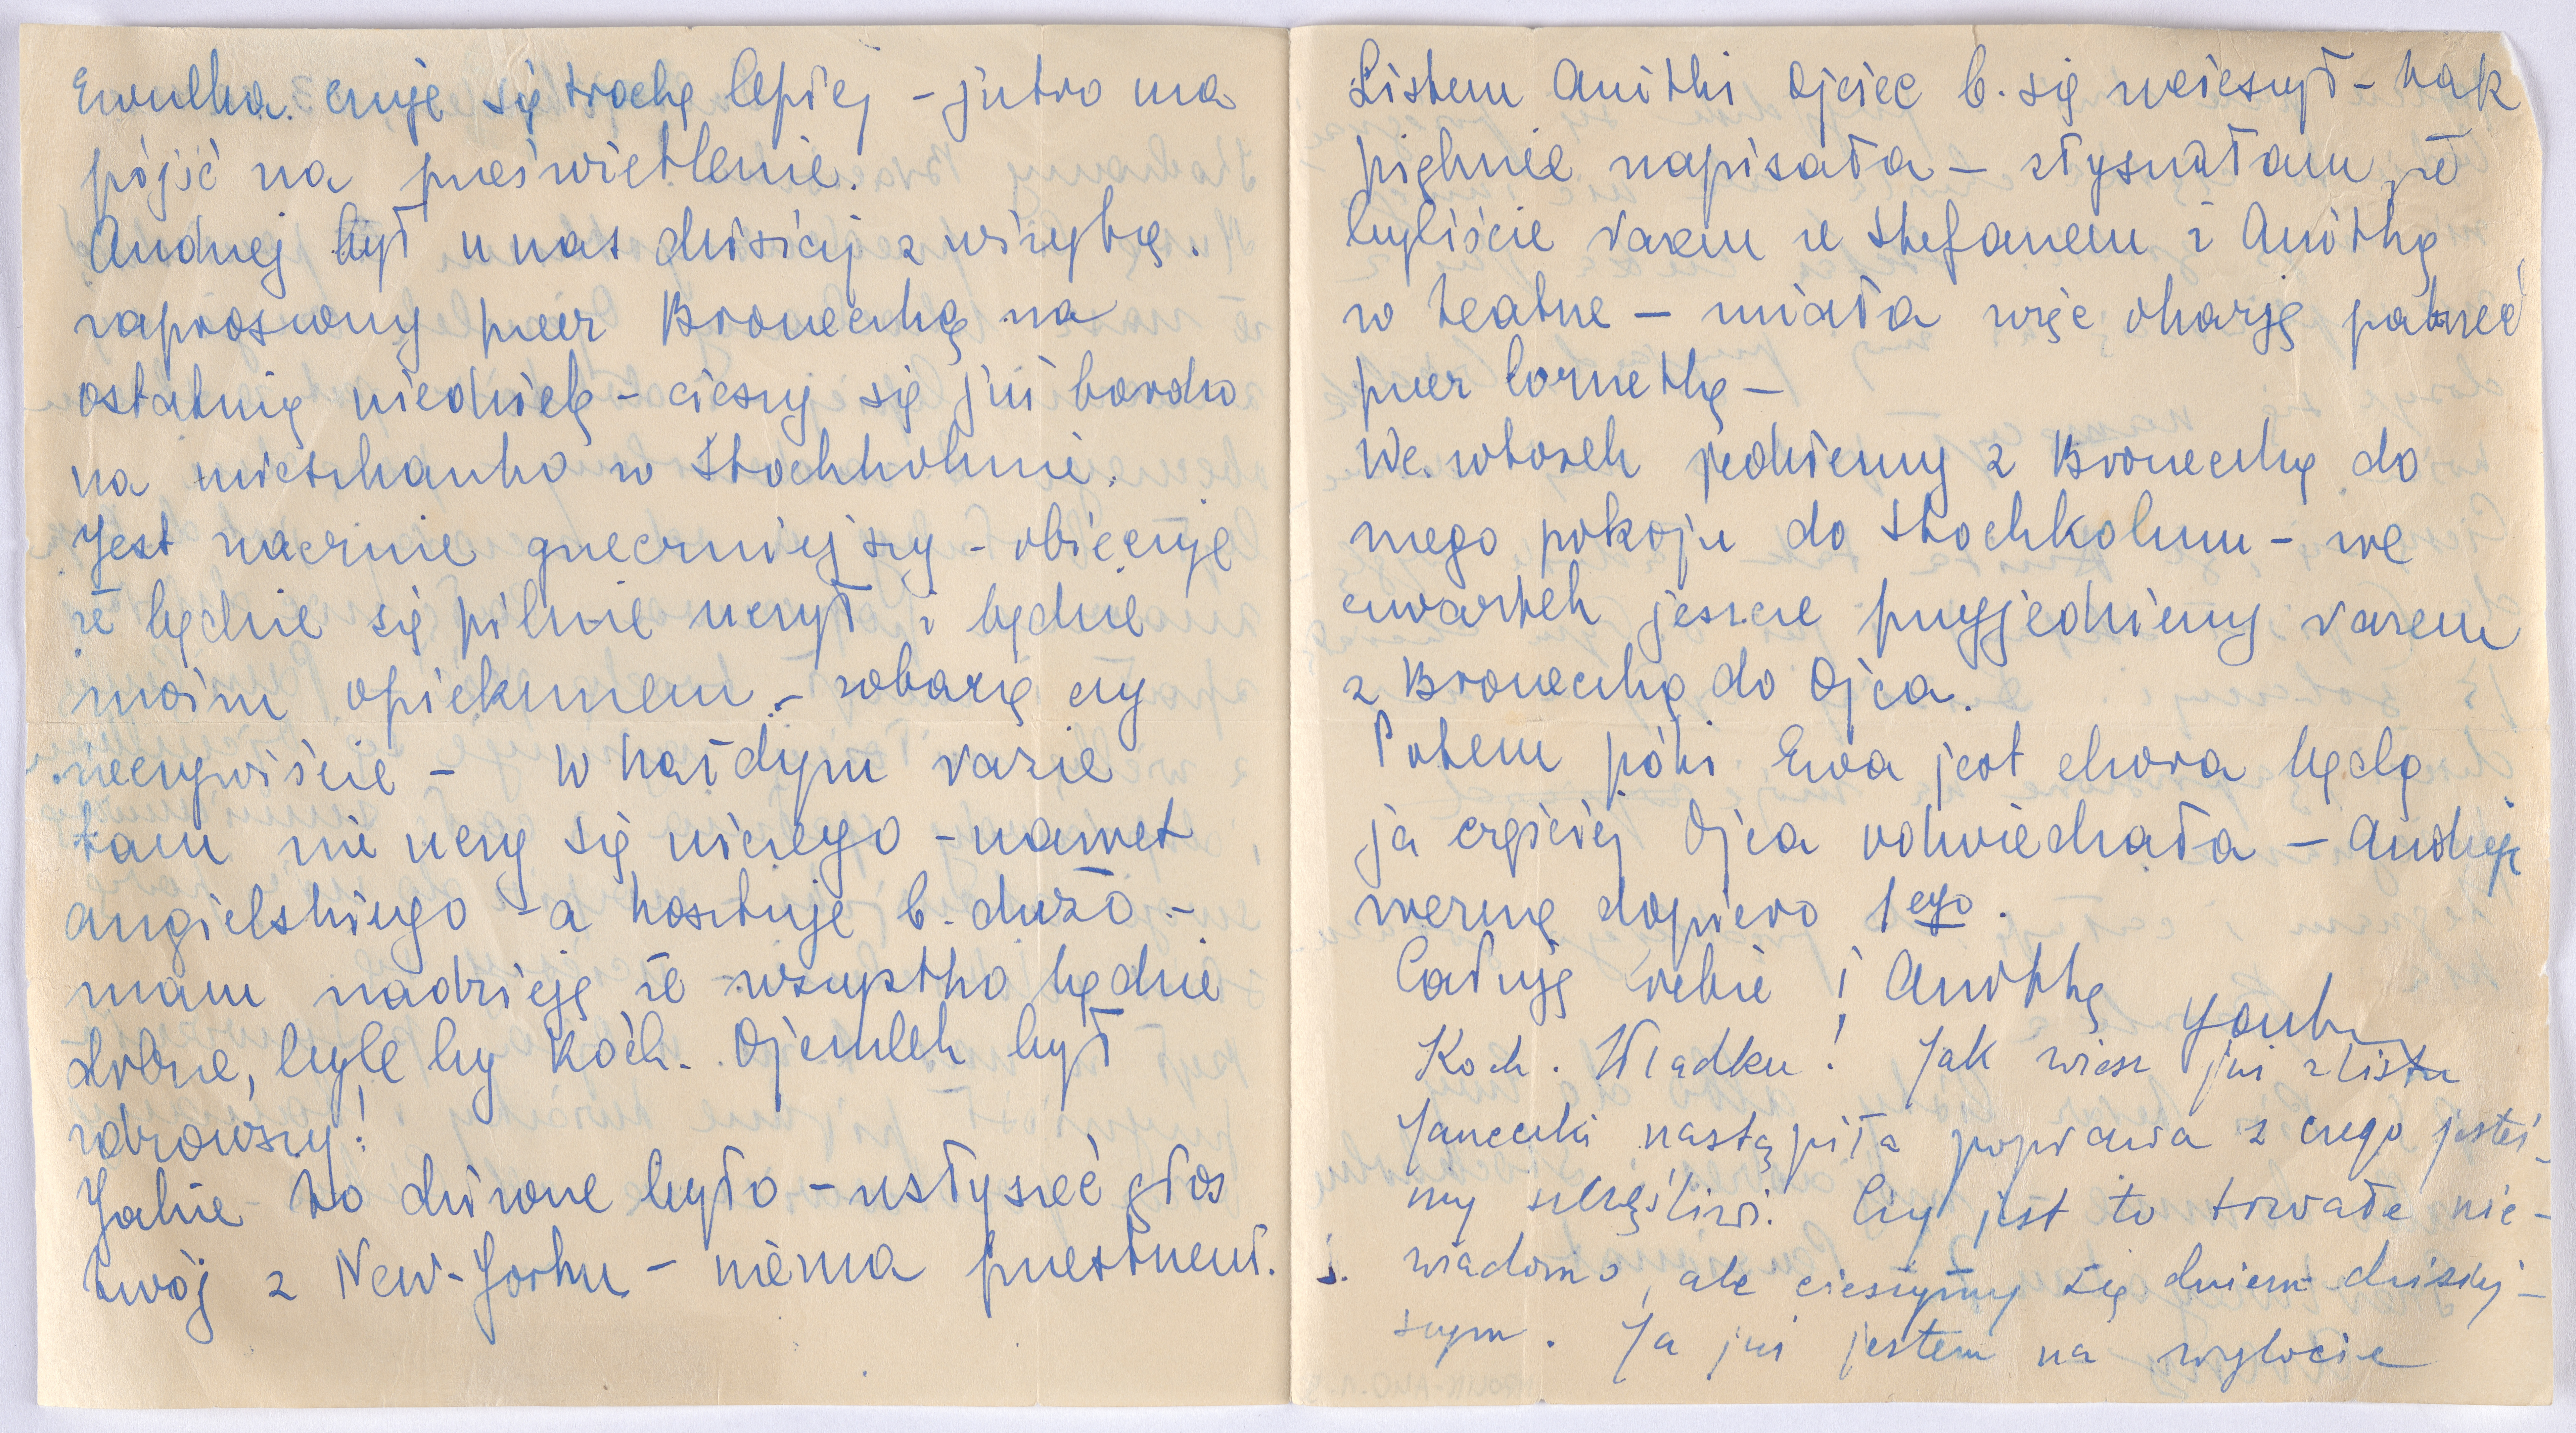 Ewulka czuje się trochę lepiej – jutro ma
pójść na prześwietlenie.
Andrzej był u nas dzisiaj z wizytą.
zaproszony przez Broneczkę na
ostatnią niedzielę – cieszy się już bardzo
na mieszkanko w Stockholmie.
Jest znacznie grzeczniejszy – obiecuje
że będzie się pilnie uczył i będzie
moim opiekunem – zobaczę czy
rzeczywiście – W każdym razie
tam nie uczy się niczego – nawet
angielskiego – a kosztuje b. dużo –
mam nadzieję że wszystko będzie
dobrze, byle by koch. Ojczulek był
zdrowszy!
Jakie to dziwne było – usłyszeć głos
twój z New-Yorku – niema przestrzeni.
Listem Anitki Ojciec b. się ucieszył – tak
pięknie napisała – słyszałam, że
byliście razem ze Stefanem i Anitką
w teatrze – miała więc okazję patrzeć
przez lornetkę –
We wtorek jedziemy z Broneczką do
mego pokoju do Stockholmu – we
czwartek jeszcze przyjedziemy razem
z Broneczką do Ojca.
Potem póki Ewa jest chora będę
ja częściej Ojca odwiedzała – Andrzeja
wezmę dopiero 1ego.
Całuję ciebie i Anitkę
Koch. Władku! Jak wiesz już z listu
Janeczki nastąpiła poprawa z czego jesteś-
my szczęśliwi. Czy jest to trwałe nie-
wiadomo, ale cieszymy się dniem dzisiej-
szym. Ja już jestem na wylocie